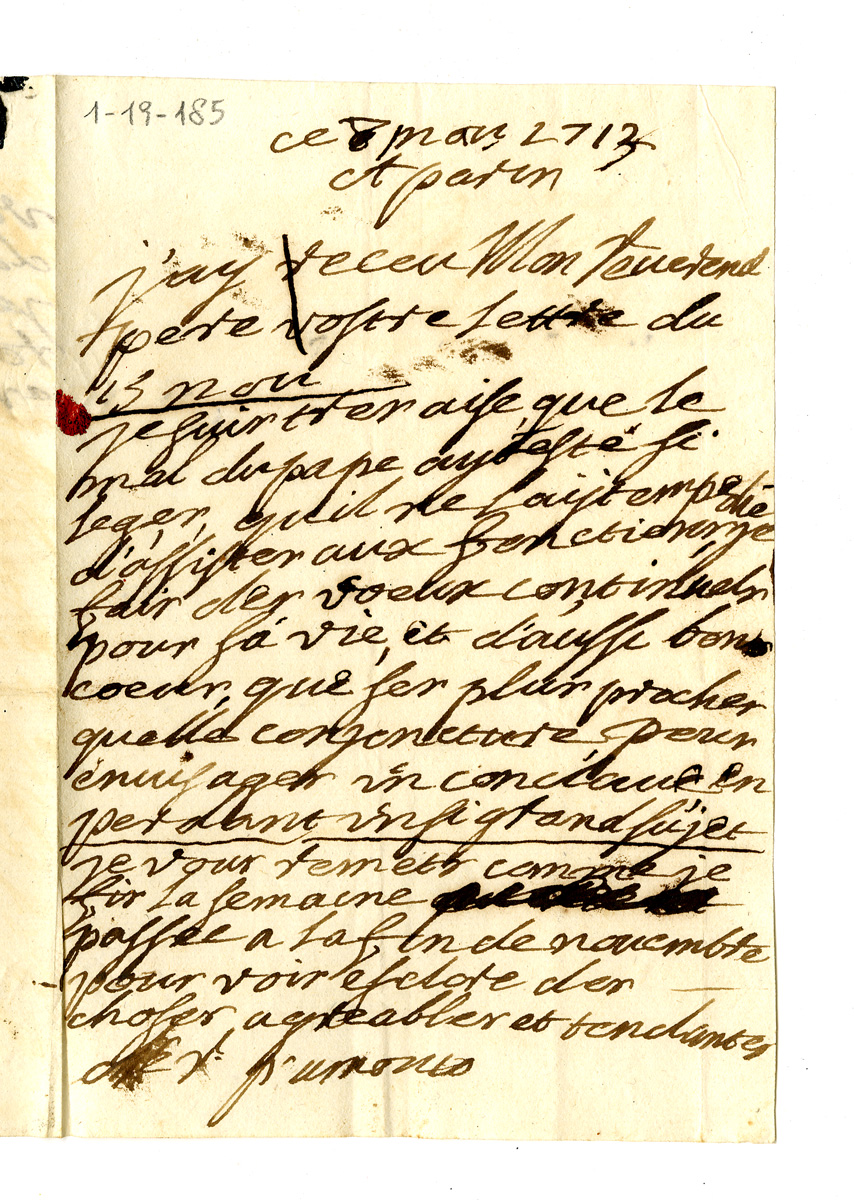 1-19-185
ce 8 nov 1713
A paris
j'ay receu Mon Reverend
pere vostre lettre du
13 nov
je suis tres aise, que le
mal du pape ayt esté si
leger, qu'il ne l'ayt empeché
d'assister aux fonctions, je
fais des voeux continuels
pour sa vie, et d'aussi bon
coeur, que ses plus proches
quelle conjoncture, pour
envisager un conclave en
perdant un si grand sujet
je vous remets comme je
fis la semaine
passée a la fin de novembre
pour voir esclore des
choses, agreables et tendantes